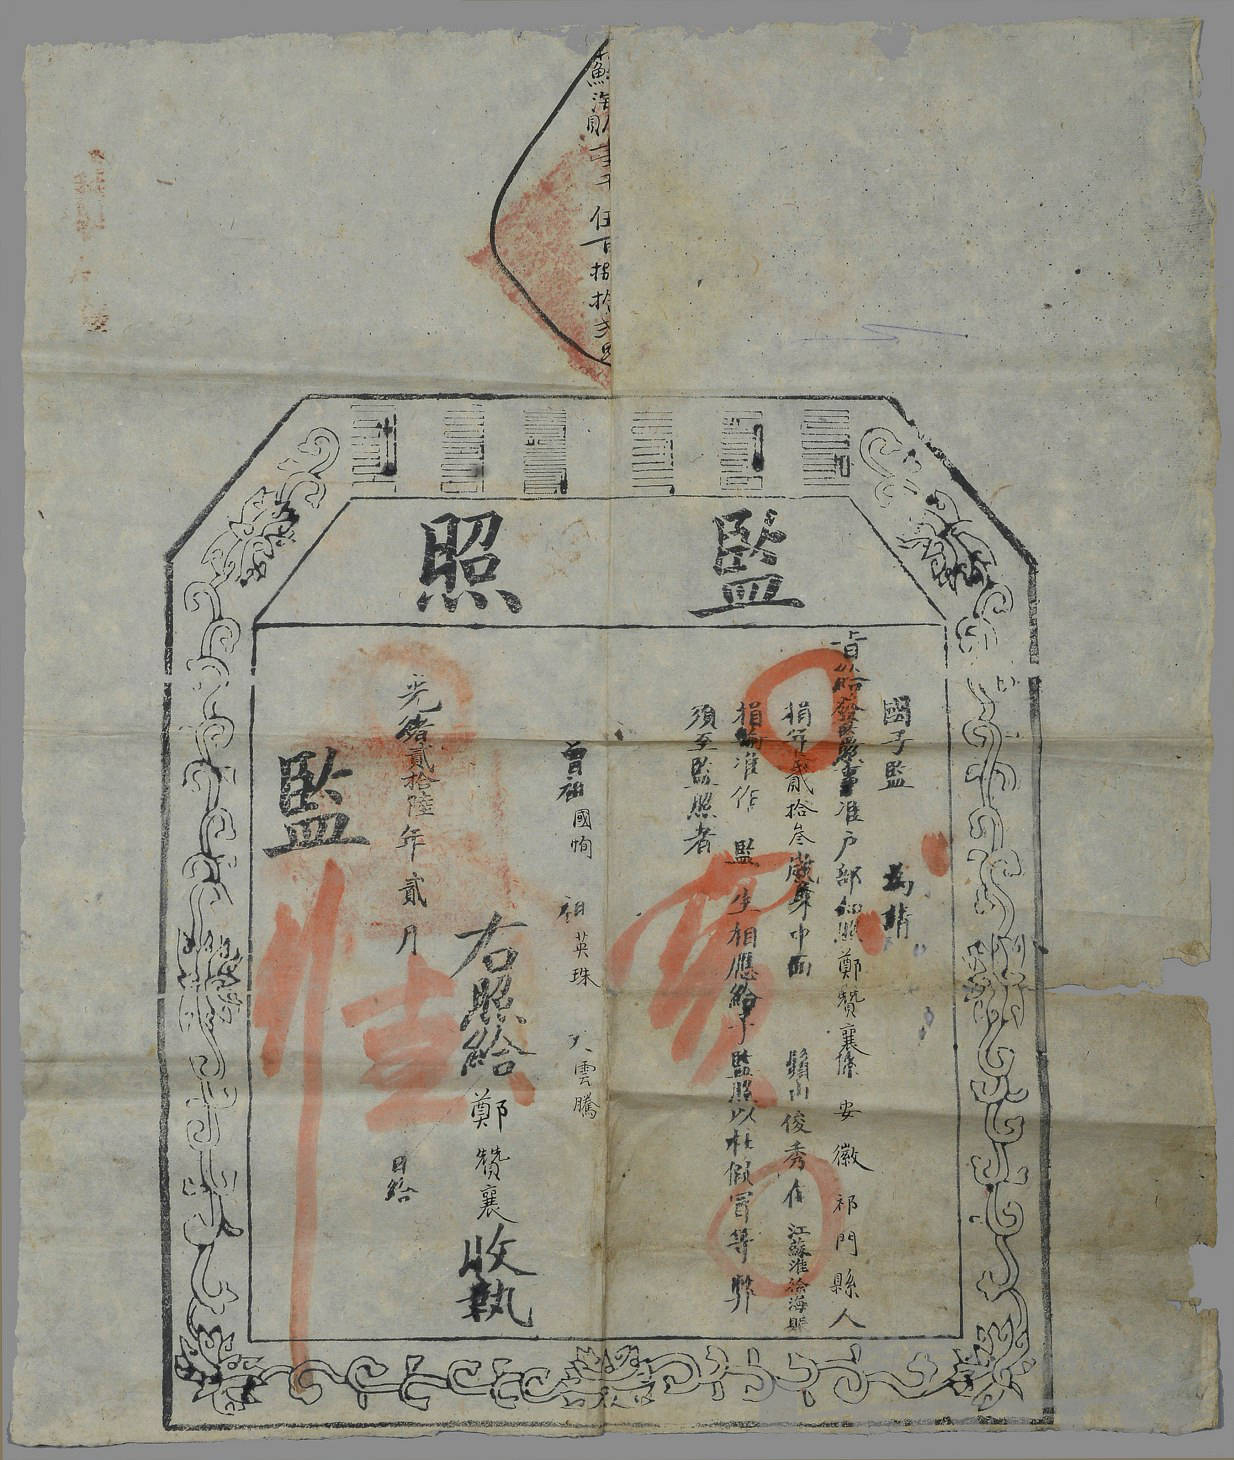 監照
國子監 為請
旨給發監照事准戶部知照鄭贊襄係安徽祁門縣人
捐年貳拾叁歲身中面 鬚由俊秀在江蘇淮徐海賑
捐輸准作 監 生相應給予監照以杜假冒等弊
須至監照者
曾祖國恂 祖英珠 父雲騰
右照給鄭贊襄收執
光緒貳拾陸年貳月 日給
監